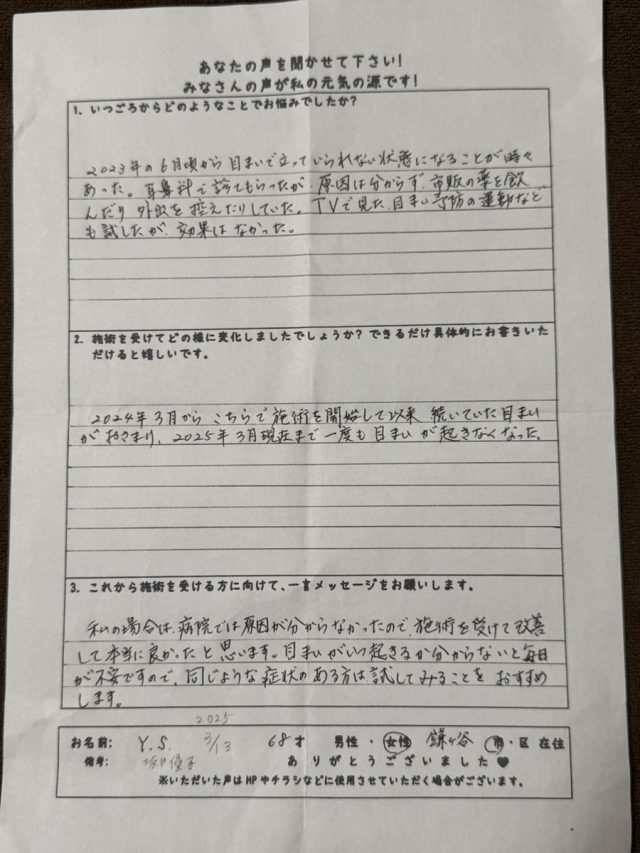 あなたの声を聞かせて下さい!
みなさんの声が私の元気の源です!
1. いつごろからどのようなことでお悩みでしたか?
2023年の6月頃から目まいで立っていられない状態になることが時々
あった。耳鼻科で診てもらったが、原因は分からず、市販の薬を飲
んだり外出を控えたりしていた。TVで見た目まい予防の運動など
も試したが、効果はなかった。
2. 施術を受けてどの様に変化しましたでしょうか? できるだけ具体的にお書きいた
だけると嬉しいです。
2024年3月からこちらで施術を開始して以来、続いていた目まい
がおさまり、2025年3月現在まで一度も目まいが起きなくなった。
3. これから施術を受ける方に向けて、一言メッセージをお願いします。
私の場合は、病院では原因が分からなかったので、施術を受けて改善
して本当に良かったと思います。目まいがいつ起きるか分からないと毎日
が不安ですので、同じような症状のある方は、試してみることをおすすめ
します。
2025
お名前: Y.S. 3/13 68才 男性・女性 鎌ヶ谷 市・区 在住
備考: ありがとうございました♥
※いただいた声はHPやチラシなどに使用させていただく場合がございます。